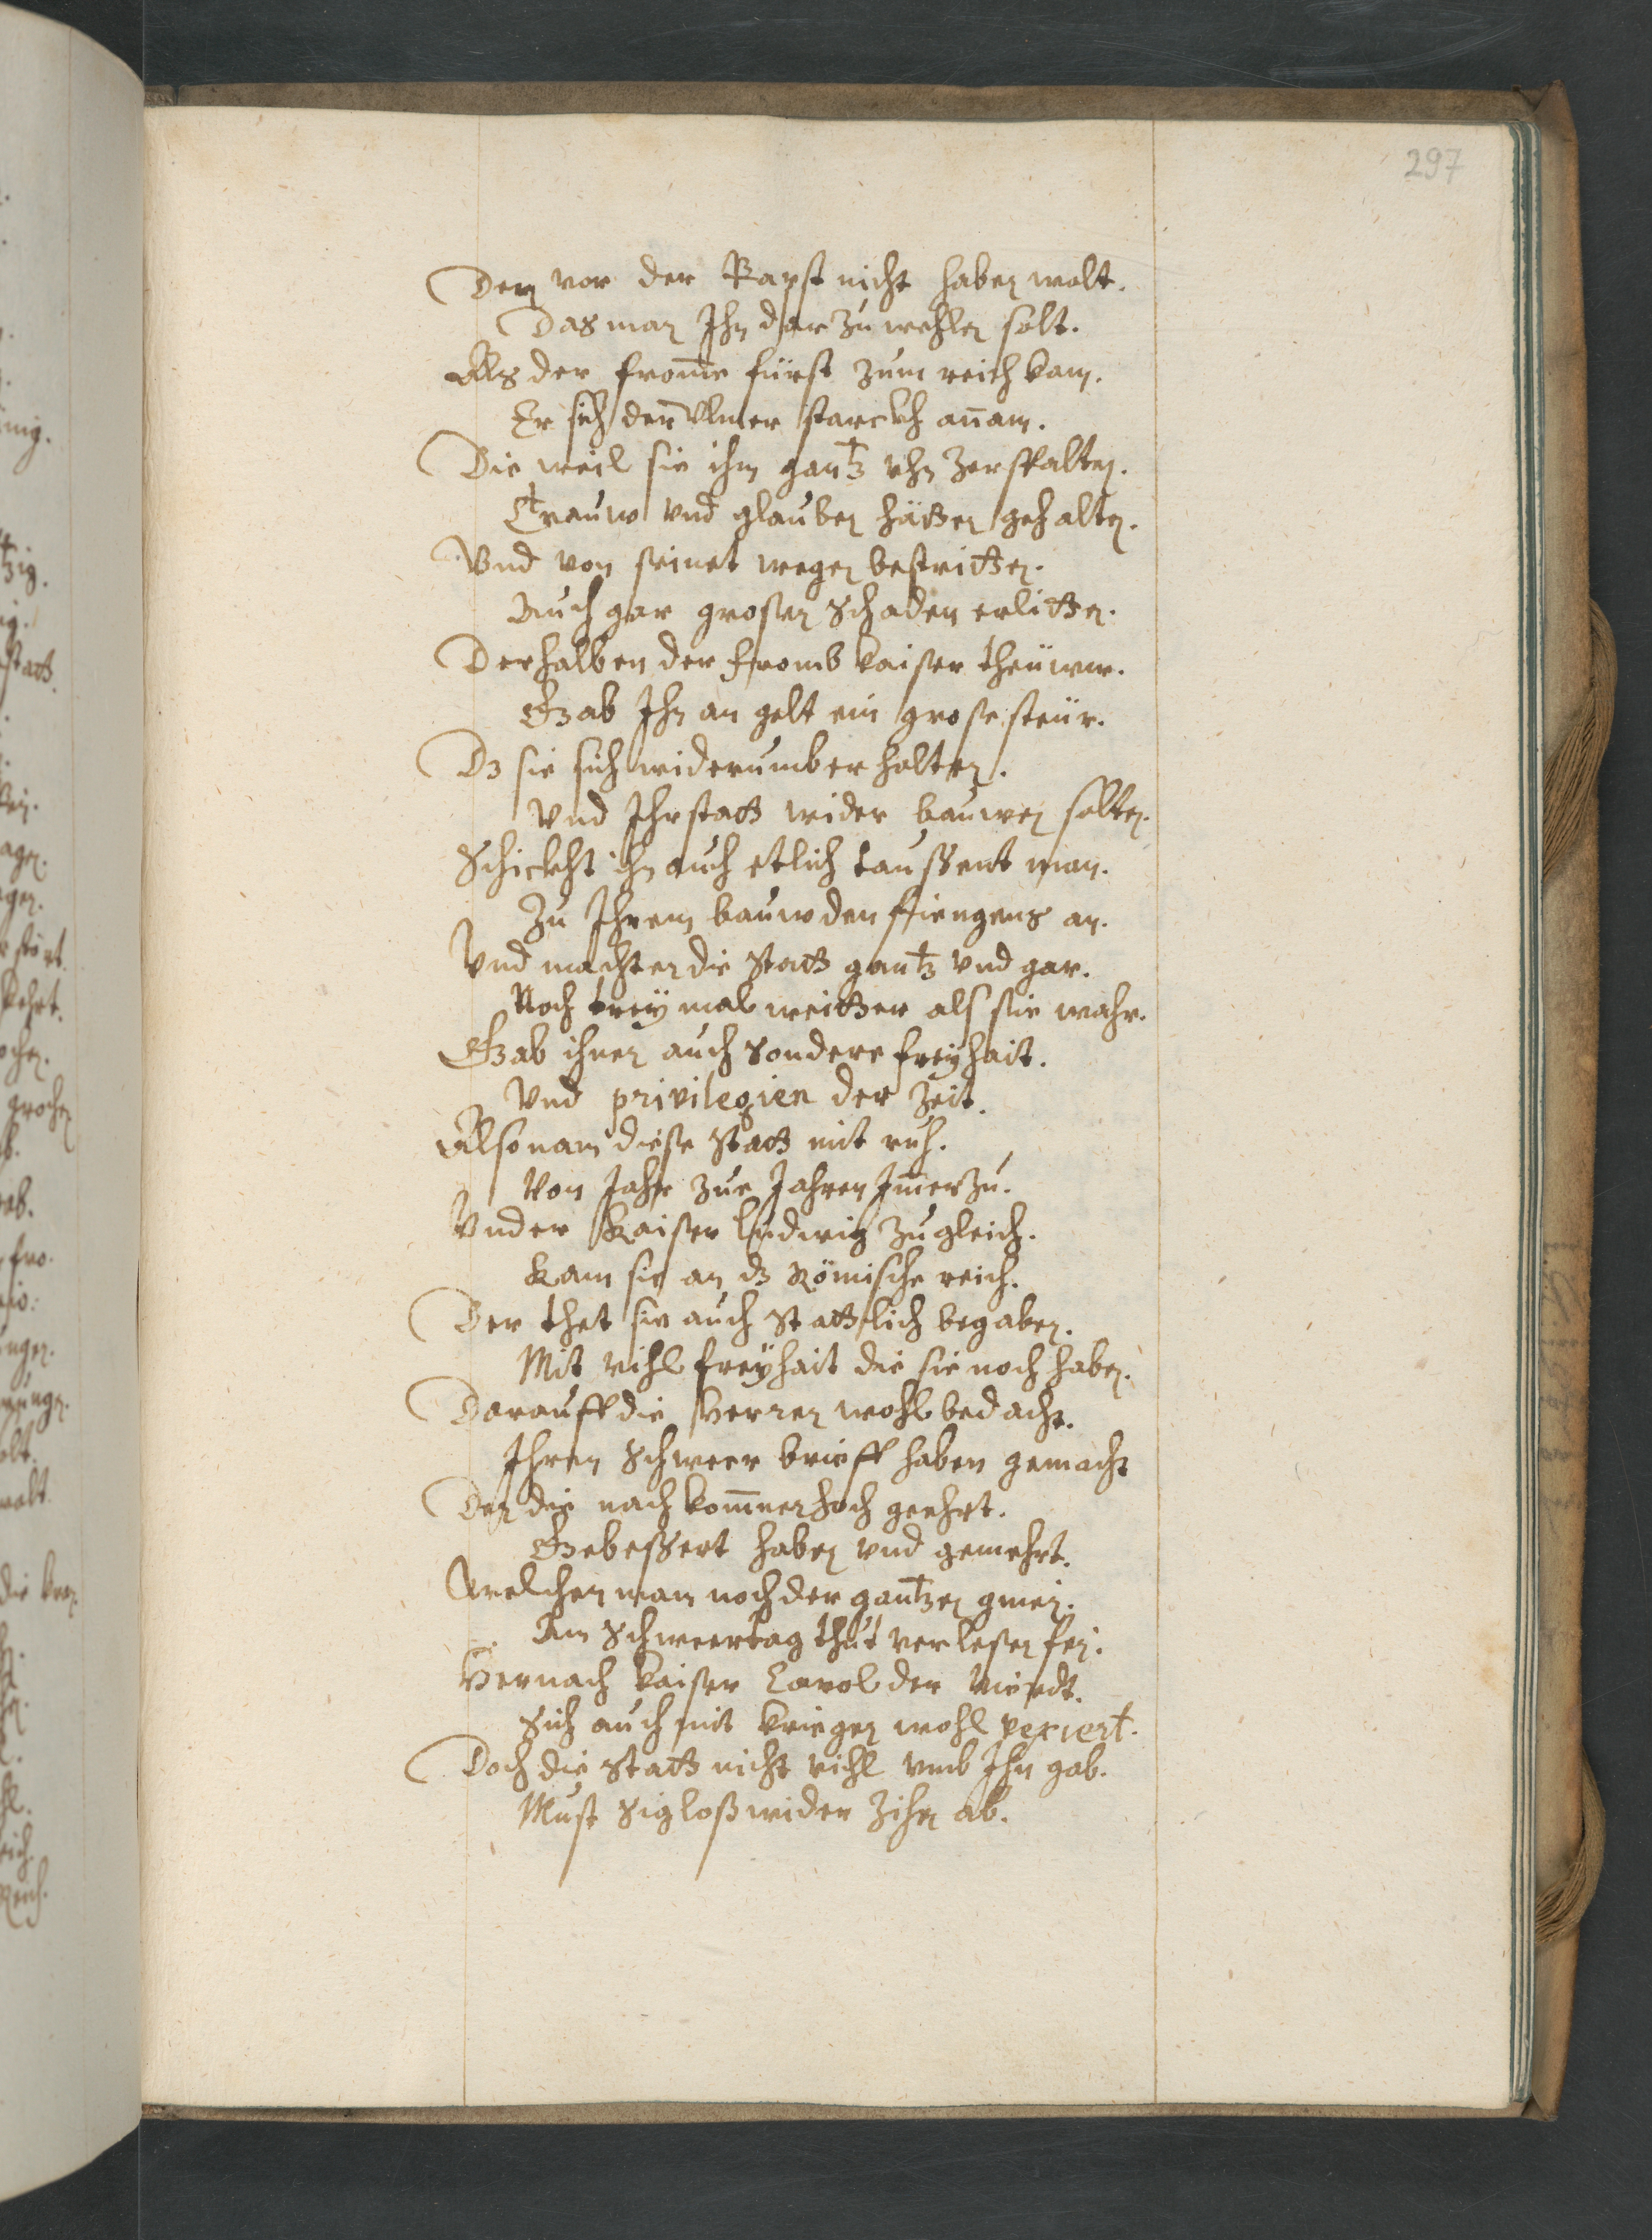 297
Den vor der Bapst nicht haben wolt.
Das man Ihn dar zu wehlen solt.
Als der from̄e fürst zum reich kam.
Er sich der Vlmer starckh an̄am.
Die weil sie ihm gantz ohn zerspalten.
Trauw vnd glauben hätten gehalten.
Vnd von seinet wegen bestritten.
Auch gar großen Schaden erlitten.
Derhalben der fromb kaiser theüwr.
Gab Ihn an gelt ein große steür.
Dz sie sich widerumb erholten.
Vnd Ihr statt wider bauwen solten.
Schickht ihn auch etlich taußent man.
Zu Ihrem bauw den fiengens an.
Vnd machten die Statt gantz vnd gar.
Noch trey mal weitter als sie wahr.
Gab ihnen auch sondere freyhait.
Vnd privilegien der Zeit.
Also nam diese Statt mit ruh.
Von Jahr zue Jahren Im̄erzu.
Vnder Kaiser Ludwig zu gleich.
Kam sie an dz Römische reich.
Der thet sie auch Stattlich begaben.
Mit vihl freyhait die sie noch haben.
Darauff die Herren wohl bedacht.
Ihren Schweer brieff haben gemacht
Den die nach kom̄ner hoch geehrt.
Gebessert haben vnd gemehrt.
Welchen man noch der gantzen gmein.
Am Schweertag thut verlesen fein.
Hernach kaiser Carol der Vierdt.
Sich auch mit kriegen wohl vexiert.
Doch die Statt nicht vihl vmb Ihn gab.
Must Sigloß wider Zihen ab.